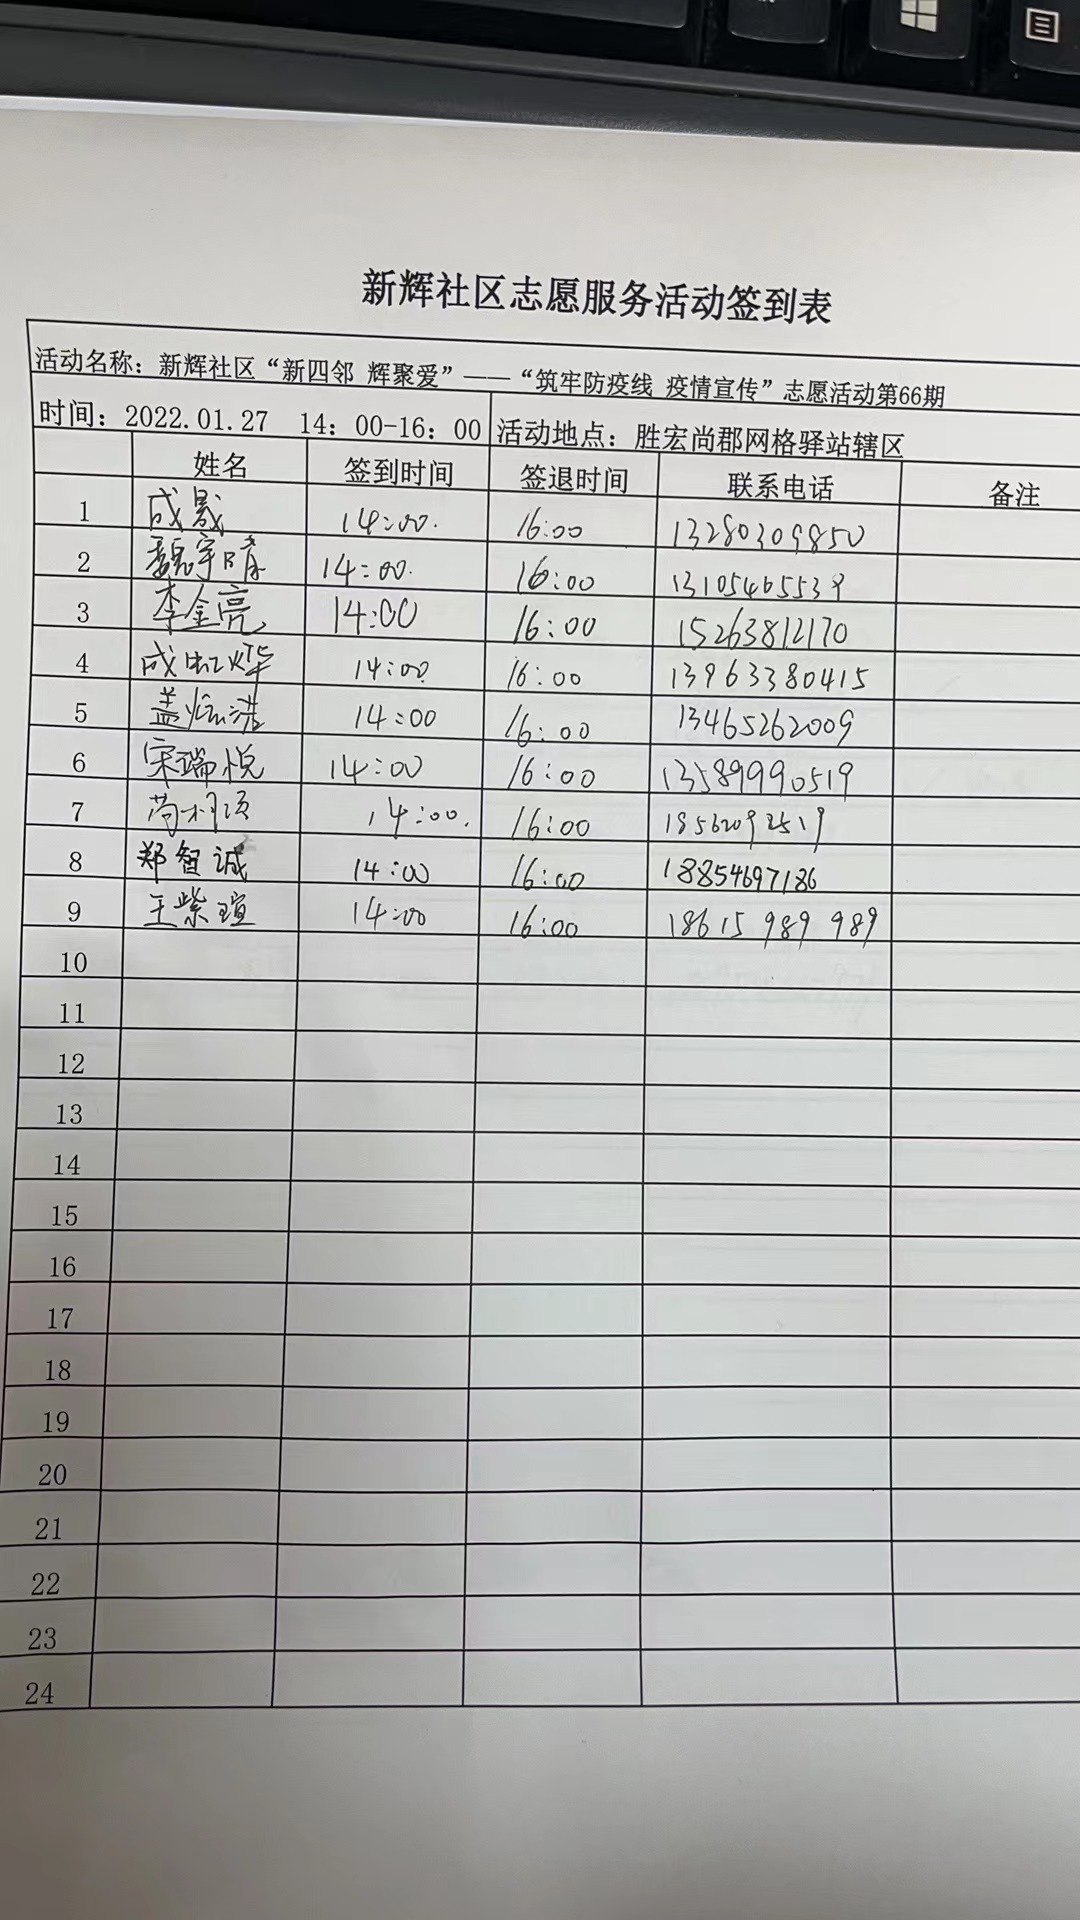 新辉社区志愿服务活动签到表
活动名称：新辉社区“新四邻 辉聚爱”——“筑牢防疫线 疫情宣传”志愿活动第66期
时间：2022.01.27 14：00-16：00 活动地点：胜宏尚郡网格驿站辖区
姓名 签到时间 签退时间 联系电话 备注
1 成晟 14:00. 16:00 13280309850
2 魏宇晴 14:00. 16:00 13105465539
3 李金亮 14:00 16:00 15263812170
4 成虹烨 14:00 16:00 13963380415
5 盖 14:00 16:00 13465262009
6 宋瑞悦 14:00 16:00 13589990519
7 14:00. 16:00
8 郑智诚 14:00 16:00 18854697186
9 王紫瑄 14:00 16:00 18615 989 989
10
11
12
13
14
15
16
17
18
19
20
21
22
23
24